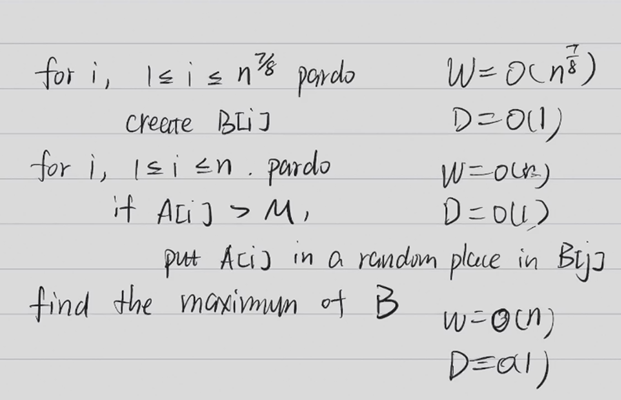 for i, 1 ≤ i ≤ n^7/8 pardo W = O(n^7/8)
create B[i] D = O(1)
for i, 1 ≤ i ≤ n. pardo W = O(n)
if A[i] > M, D = O(1)
put A[i] in a random place in B[j]
find the maximum of B
W = O(n)
D = O(1)